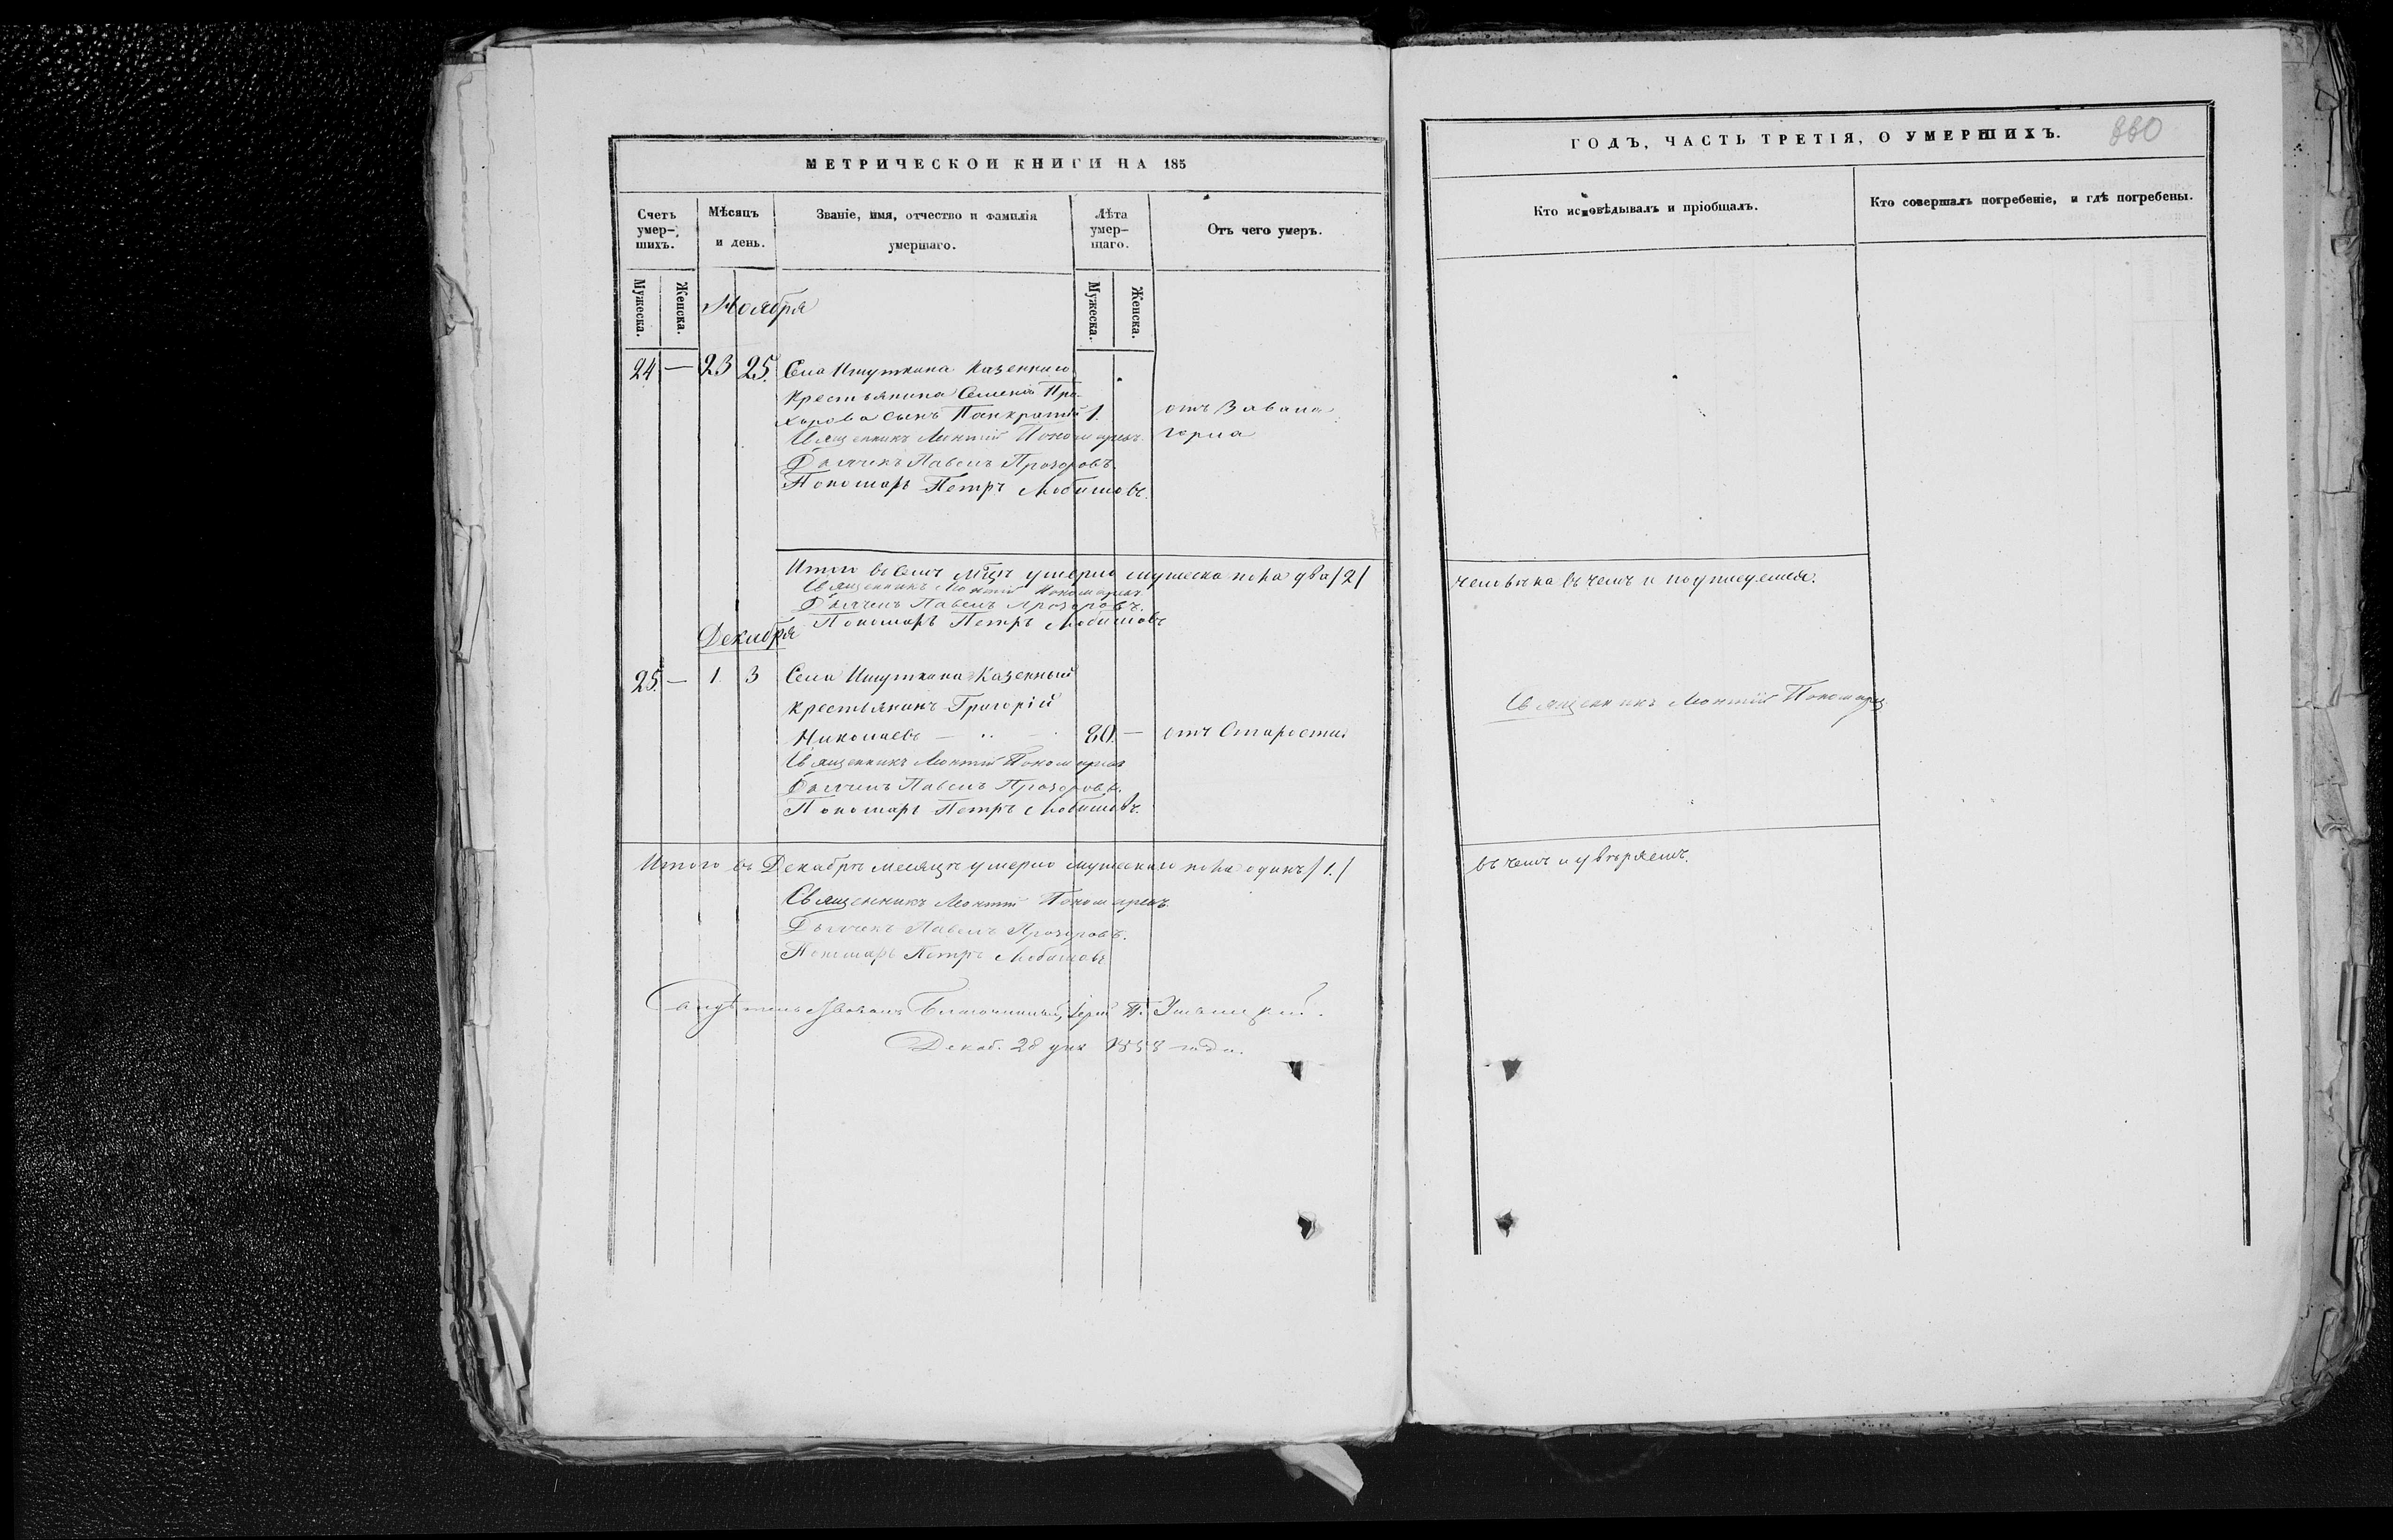 МЕТРИЧЕСКОЙ КНИГИ НА 185
Счетъ умер-шихъ.
Мѣсяцъ и день.
Званіе, имя, отчество и фамилія умершаго.
Лѣта умер-шаго.
Отъ чего умеръ.
Мужеска.
Женска.
Мужеска.
Женска.
Ноября
24 — 23 25. Села Ишуткина Казеннаго
крестьянина Семена Про-
хорова сынъ Панкратій 1. отъ Завала
Священникъ Леонтій Пономаревъ. горла
Дьячекъ Павелъ Прозоровъ.
Пономарь Петръ Любимовъ.
Итого въ семъ мцѣ умерло мужеска пола два /2/
Священникъ Леонтій Пономаревъ
Дьячекъ Павелъ Прозоровъ.
Пономарь Петръ Любимовъ
Декабря
25. — 1. 3 Села Ишуткина Казенный
крестьянинъ Григорій
Николаевъ — 80. — отъ Старости
Священникъ Леонтій Пономаревъ
Дьячекъ Павелъ Прозоровъ.
Пономарь Петръ Любимовъ.
Итого въ Декабрѣ месяцѣ умерло мужескаго пола одинъ /1./
Священникъ Леонтій Пономаревъ.
Дьячекъ Павелъ Прозоровъ.
Пономарь Петръ Любимовъ
Свидѣтельствовалъ Благочинный, Іерей П.
Декаб. 28 дня 1858 года.
ГОДЪ, ЧАСТЬ ТРЕТІЯ, О УМЕРШИХЪ. 330
Кто исповѣдывалъ и пріобщалъ.
Кто совершалъ погребеніе, и гдѣ погребены.
человѣка въ чемъ и подписуемся.
Священникъ Леонтій Пономаревъ
въ чемъ и увѣряемъ.